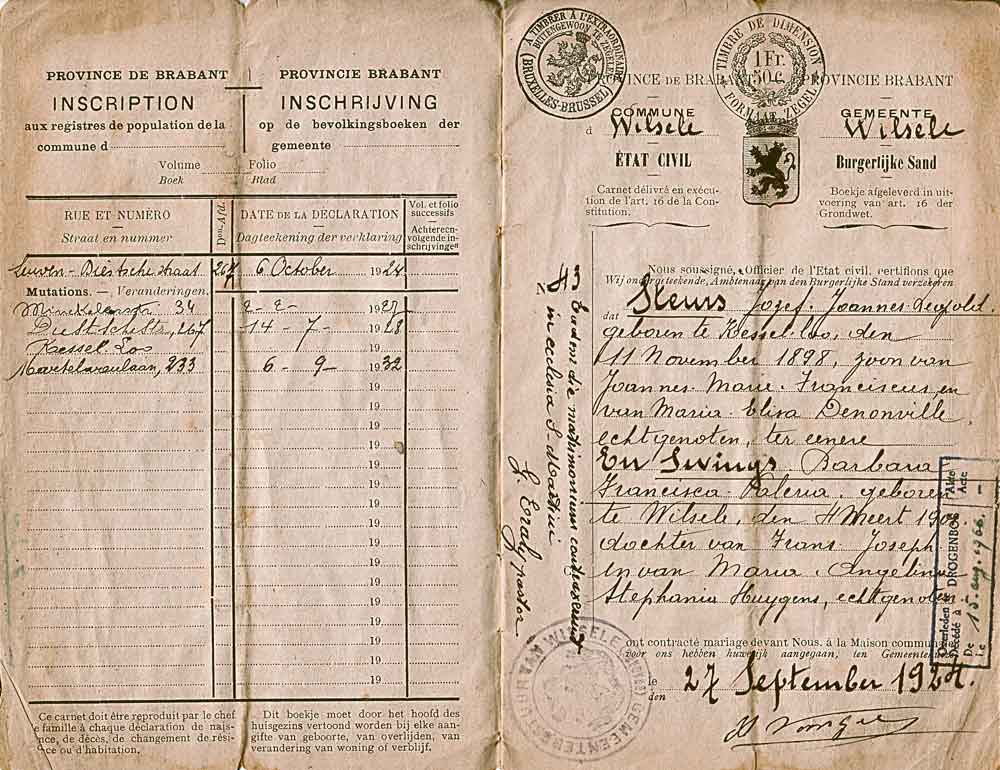 PROVINCE DE BRABANT
INSCRIPTION
aux registres de population de la
commune d
PROVINCIE BRABANT
INSCHRIJVING
op de bevolkingsboeken der
gemeente
Volume Folio
Boek Blad
RUE ET NUMÉRO
Straat en nummer
Dom.-Afd.
DATE DE LA DÉCLARATION
Dagteekening der verklaring
Vol. et folio
successifs
Achtereen-
volgende in-
schrijvingen
Leuven - Diestsche straat 6 October 1924
Mutations. — Veranderingen.
34 2 - 2 - 1927
267 14 - 7 - 1928
Kessel-Loo
Martelarenlaan, 233 6 - 9 - 1932
19
19
19
19
19
19
19
19
19
19
19
19
19
19
19
19
Ce carnet doit être reproduit par le chef
de famille à chaque déclaration de nais-
sance, de décès, de changement de rési-
dence ou d'habitation.
Dit boekje moet door het hoofd des
huisgezins vertoond worden bij elke aan-
gifte van geboorte, van overlijden, van
verandering van woning of verblijf.
A TIMBRER À L'EXTRAORDINAIRE
BUITENGEWOON TE ZEGELEN
(BRUXELLES-BRUSSEL)
TIMBRE DE DIMENSION
1 Fr.
50 c.
FORMAAT ZEGEL
PROVINCE DE BRABANT PROVINCIE BRABANT
COMMUNE
d Wilsele
ÉTAT CIVIL
Carnet délivré en exécu-
tion de l'art. 16 de la Con-
stitution.
GEMEENTE
Wilsele
Burgerlijke Stand
Boekje afgeleverd in uit-
voering van art. 16 der
Grondwet.
Nous soussigné, Officier de l'Etat civil, certifions que
Wij ondergeteekende, Ambtenaar van den Burgerlijke Stand verzekeren
dat Sleurs Jozef Joannes Leopold
geboren te Kessel-Loo, den
11 November 1898, zoon van
Joannes Marie Franciscus, en
van Maria Elisa Denonville
echtgenoten, ter eenere
En Swings Barbara
Francisca Valeria, geboren
te Wilsele, den 4 Meert
dochter van Frans Joseph
en van Maria Angelina
Stephania Huygens, echtgenoten
ont contracté mariage devant Nous, à la Maison communale
voor ons hebben huwelijk aangegaan, ten Gemeentehuize
le
den 27 September 1924.
Eadem die matrimonium contraxerunt
in ecclesia S. Martini
pastor
WILSELE
Overleden te DROGENBOS Akte
Décédé à Acte
De
Le 13 aug. 1966